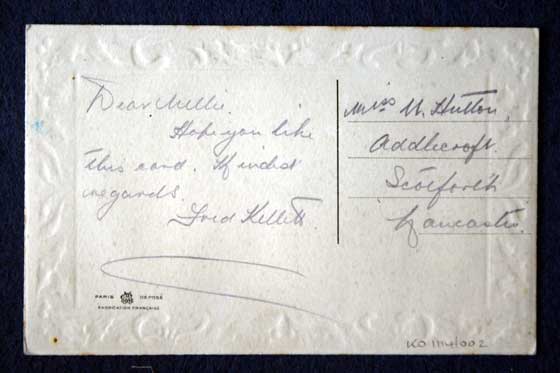 Dear Nellie.
Hope you like
this card. Kindest
regards.
Fred Kellett.
Miss N. Hutton,
Addlecroft.
Scotforth
Lancaster.
PARIS DÉPOSÉ
FABRICATION FRANÇAISE
KO1114/002